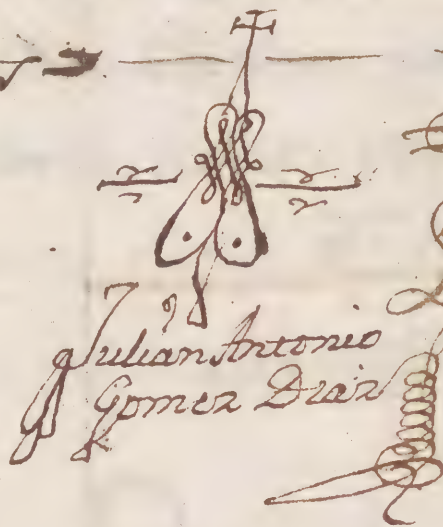 Julian Antonio
Gomez Diaz